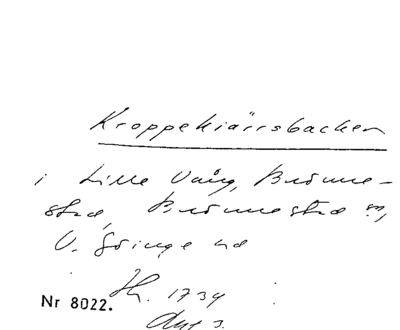 Kroppekiärrsbacken
i Lille Vång, Brönne-
stad, Brönnestad sn,
V. Göinge hd
Nr 8022. Jh. 1734
Akt 3.